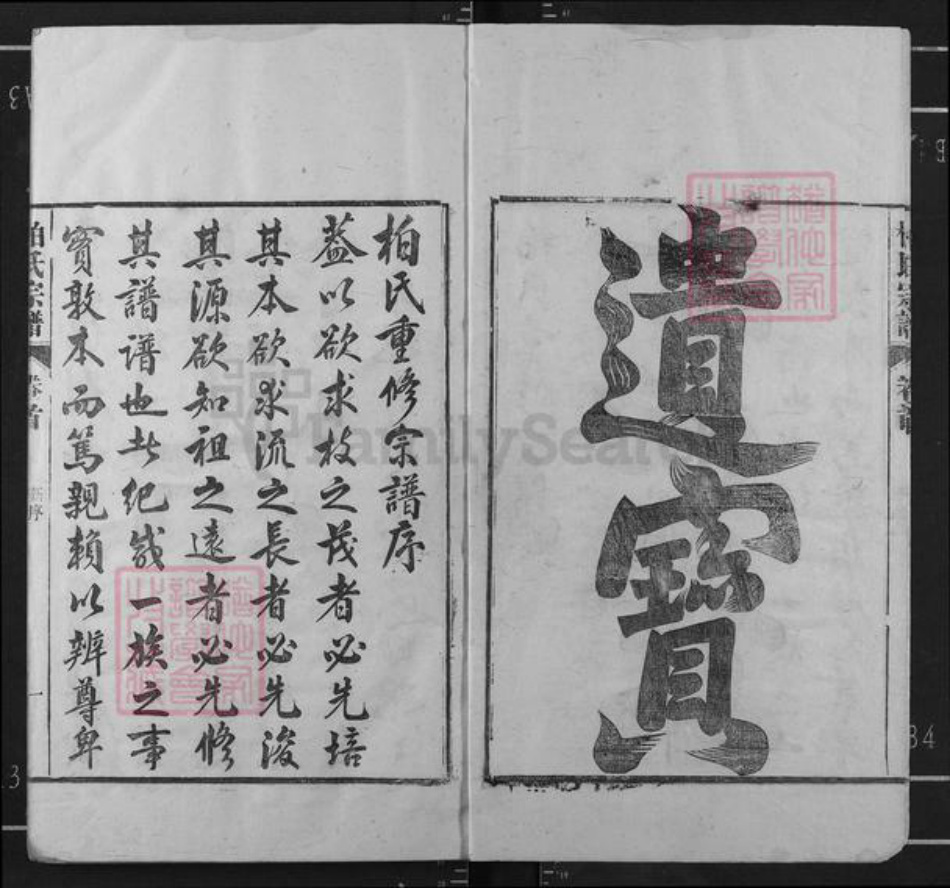 遺寶
柏氏重修宗譜序
蓋以欲求枝之茂者必先培
其本欲求流之長者必先浚
其源欲知祖之遠者必先修
其譜譜也者紀载一族之事
實敦本而篤親賴以辨尊卑
柏氏宗譜
卷首
新序
一
柏氏宗譜
卷首
FamilySearch